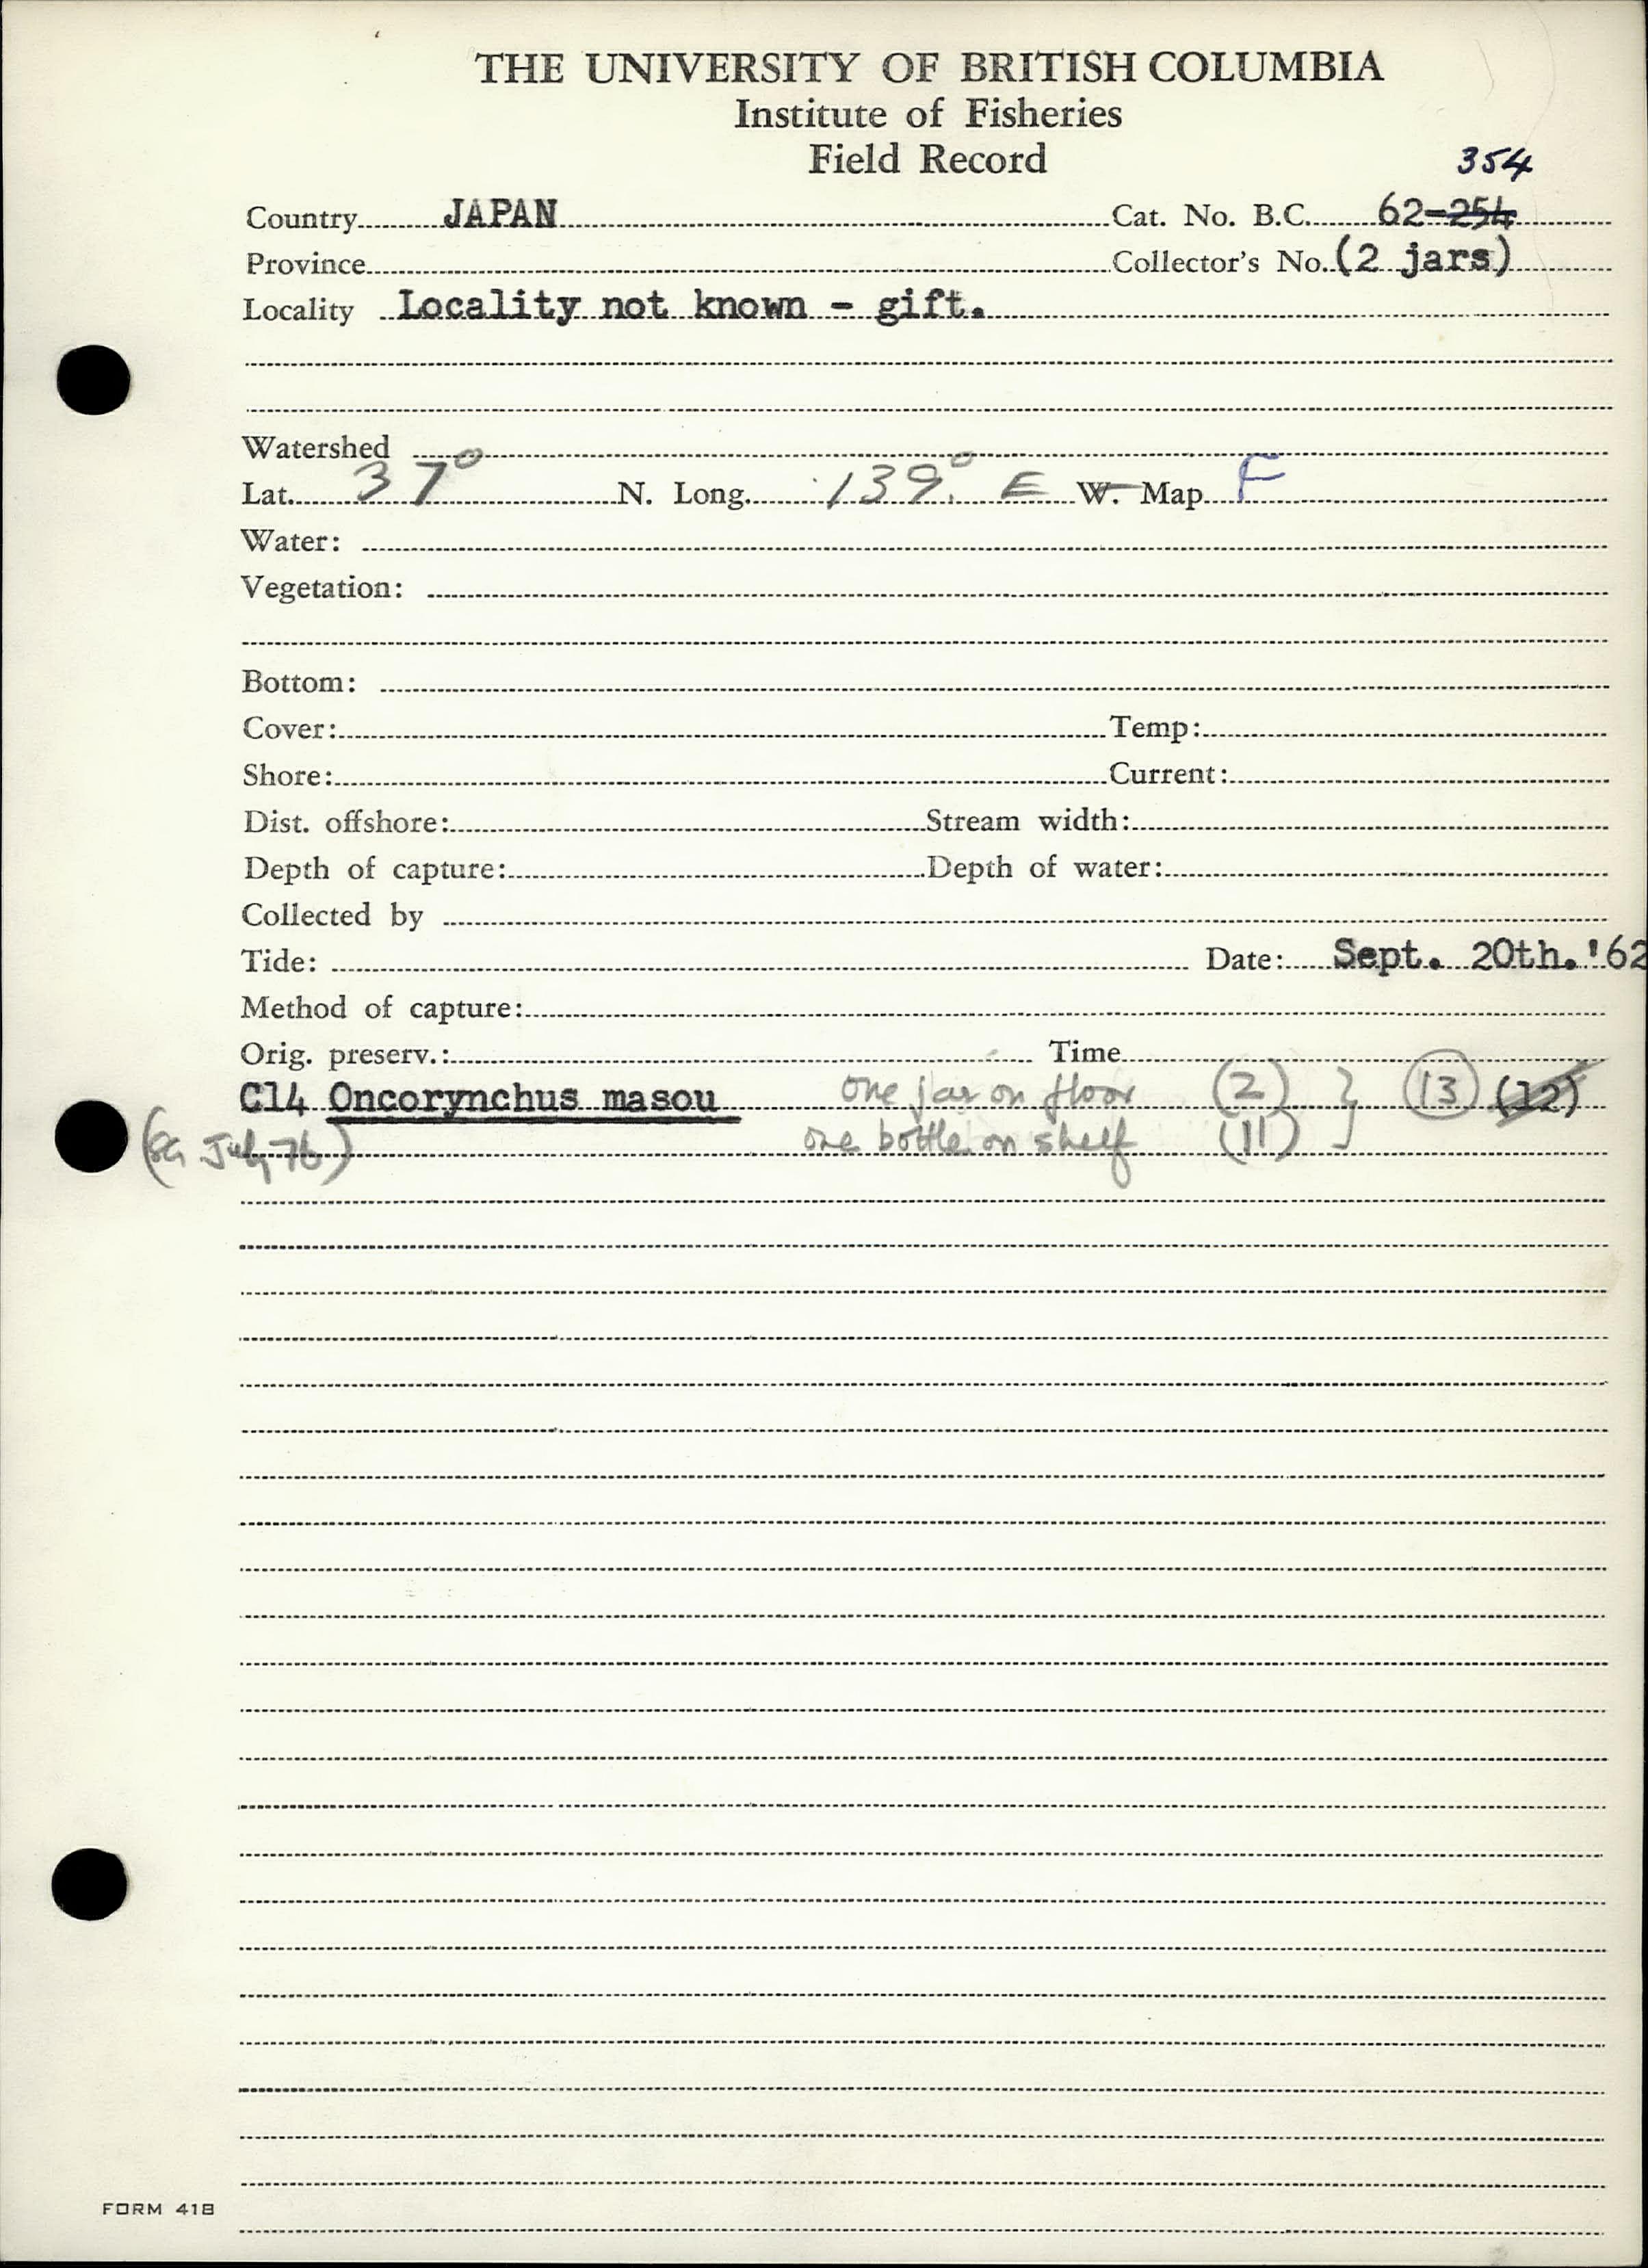 THE UNIVERSITY OF BRITISH COLUMBIA
Institute of Fisheries
Field Record
354
Country JAPAN Cat. No. B.C. 62-254
Province Collector's No. (2 jars)
Locality Locality not known - gift.
Watershed
Lat. 37° N. Long. 139° E W. Map F
Water:
Vegetation:
Bottom:
Cover: Temp:
Shore: Current:
Dist. offshore: Stream width:
Depth of capture: Depth of water:
Collected by
Tide: Date: Sept. 20th. '62
Method of capture:
Orig. preserv.: Time
C14 Oncorynchus masou one jar on floor (2) } 13 (12)
July 76) one bottle on shelf (11)
FORM 418